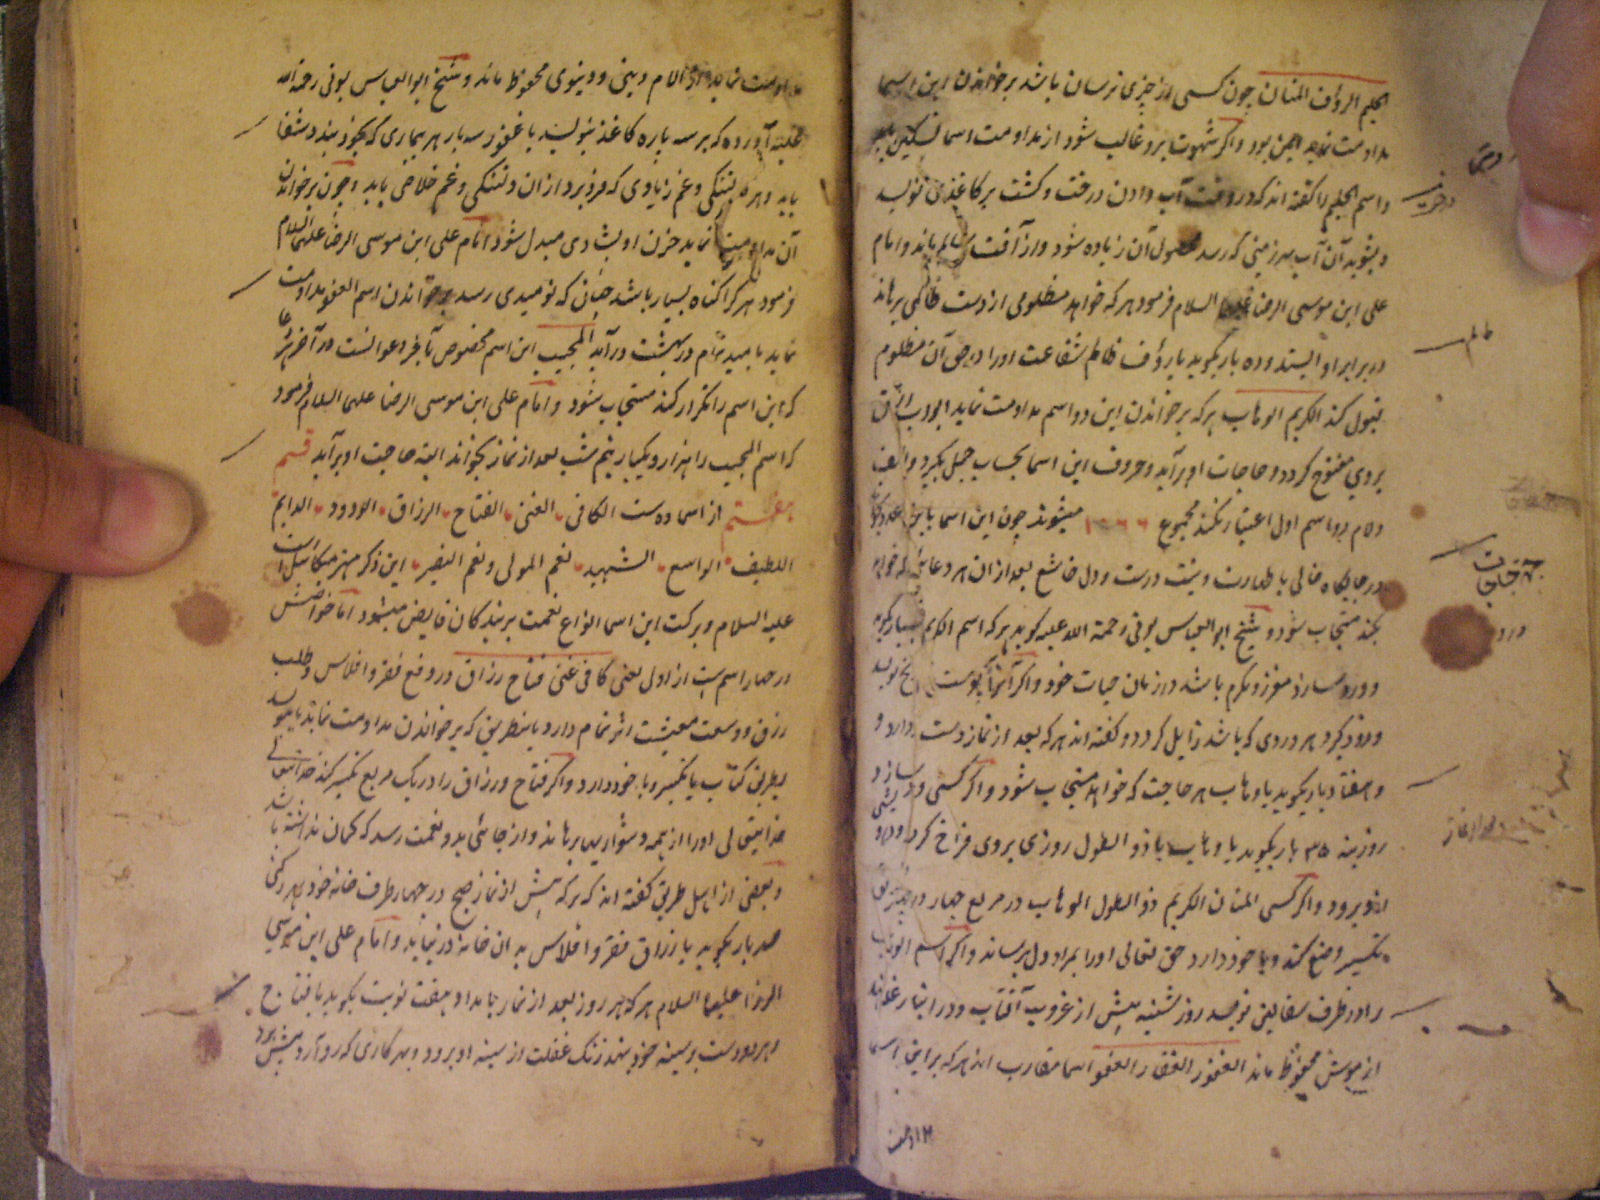 الحلیم الرؤف المنان چون کسی از چیزی ترسان باشد بر خواندن این اسما
مداومت نماید ایمن بود و اگر شهوت برو غالب شود از مداومت اسما تسکین یابد
و اسم الحلیم را گفته اند که در وقت آب دادن درخت و کشت بر کاغذی نویسد
و بشوید آن آب بهر زمینی که رسد محصول آن زیاده شود و از آفت سالم ماند و امام
علی ابن موسی الرضا علیهما السلام فرمود هر که خواهد مظلومی از دست ظالمی برهاند
در برابر او ایستد و ده بار بگوید یا رؤف ظالم شفاعت او را در حق آن مظلوم
قبول کند الکریم الوهاب هر که بر خواندن این دو اسم مداومت نماید ابواب ارزاق
بر وی مفتوح گردد و حاجات او برآید و حروف این اسما بحساب جمل بگیرد و الف
و لام دو اسم اول اعتبار نکند مجموع میشود چون این اسما باین عدد
در جایگاه خالی با طهارت و نیت درست و دل خاشع بعد از آن هر دعائی که خواهد
بکند مستجاب شود و شیخ ابو العباس بونی رحمة الله علیه گوید هر که اسم الکریم بسیار گوید
و ورد سازد معزز و مکرم باشد در زمان حیات خود و اگر آنرا بر پوست نویسد
و بخود گیرد هر دردی که باشد زایل گردد و گفته اند هر که بعد از نماز دست بردارد و
و هفتاد بار بگوید یا وهاب هر حاجت که خواهد مستجاب شود و اگر کسی ورد سازد و
روزینه ۳۵ بار بگوید یا وهاب یا ذو الطول روزی بر وی فراخ گردد و درویشی
ازو برود و اگر کسی المنان الکریم ذو الطول الوهاب در مربع چهار در چهار بطریق
تکسیر وضع کند و با خود دارد حق تعالی او را بمراد دل برساند و اگر اسم الوهاب
را در ظرف سفالین نویسد روز شنبه پیش از غروب آفتاب و در انبار غله نهد
از موش محفوظ ماند الغفور الغفار العفو اسما متقارب اند هر که بر این اسما
مداومت
ظالم
جهت حاجات
درد
مداومت نماید از آلام دینی و دنیوی محفوظ ماند و شیخ ابو العباس بونی رحمة الله
علیه آورده که بر سه پاره کاغذ بنویسد یا غفور سه بار هر بیماری که بخود بندد شفا
یابد و هر دلتنگی و غم زیادی که فرو برد از ان دلتنگی و غم خلاصی یابد و چون بر خواندن
آن مداومت نماید حزن او بشادی مبدل شود امام علی ابن موسی الرضا علیهما السلام
فرمود هر کرا گناه بسیار باشد چنان که نومیدی رسد بر خواندن اسم العفو مداومت
نماید بامید تمام در بهشت درآید المجیب این اسم مخصوص تأخر دعوات است در آخر هر دعا
که این اسم را تکرار کند مستجاب شود و امام علی ابن موسی الرضا علیهما السلام فرمود
که اسم المجیب را هزار و یکبار نیم شب بعد از نماز بخواند البته حاجت او برآید قسم
هفتم از اسما ده است الکافی الغنی الفتاح الرزاق الودود الدایم
اللطیف الواسع الشهید نعم المولی و نعم النصیر این ذکر مهتر میکائیل است
علیه السلام و برکت این اسما انواع نعمت بر بندگان فایض میشود اما خواصش
در چهار اسم است از اول یعنی کافی غنی فتاح رزاق در دفع فقر و افلاس و طلب
رزق و وسعت معیشت اثر تمام دارد باینطریق که بر خواندن مداومت نماید یا بنویسد
بطریق کتاب یا تکسیر و با خود دارد و اگر فتاح و رزاق را در یک مربع تکسیر کند خدایتعالی
خدایتعالی او را از همه دشواریها برهاند و از جائی بدو نعمت رسد که گمان نداشته باشد
و بعضی از اهل طریق گفته اند که هر که پیش از نماز صبح در چهار طرف خانه خود بهر رکنی
صد بار بگوید یا رزاق فقر و افلاس بدان خانه در نیاید و امام علی ابن موسی
الرضا علیهما السلام هر که هر روز بعد از نماز بامداد هفت نوبت بگوید یا فتاح
و هر دو دست بر سینه خود بنهد زنگ غفلت از سینه او برود و بهر کاری که رو آرد پیش برد